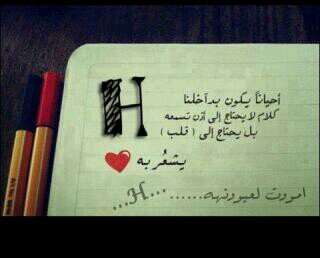 H
أحياناً يكون بدآخلنا
كلام لا يحتاج إلى أذن تسمعه
بل يحتاج إلى ( قلب )
يشعُر به
اموووت لعيوونهه......H...